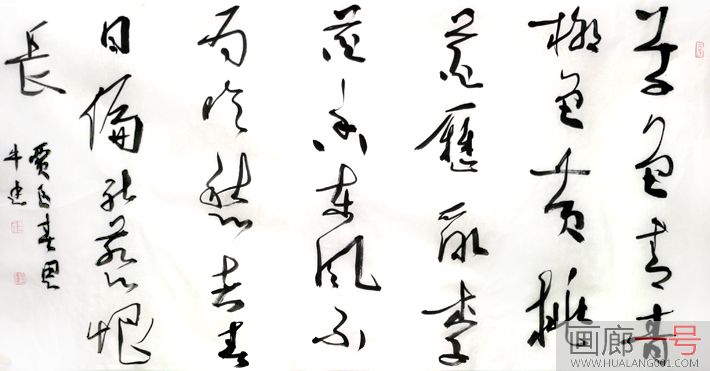 草色青青
柳色黄桃
花歷乱李
花香东风不
为吹愁去春
日偏能惹恨
长
贾至春思
牛
画廊一号
WWW.HUALANG001.COM